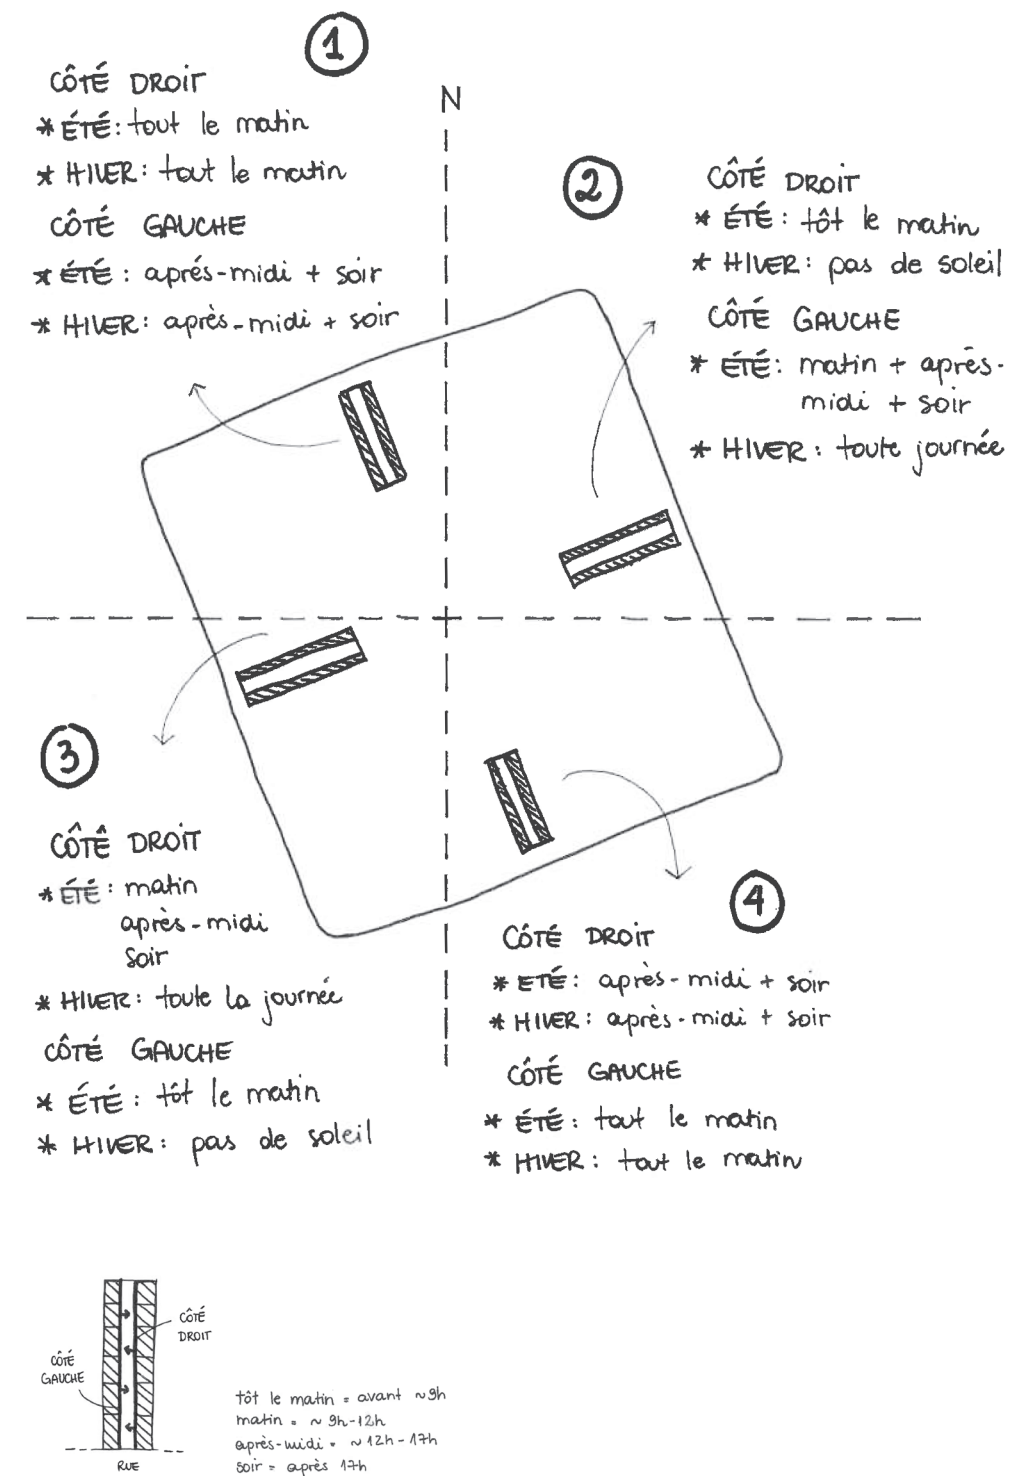 1
CÔTÉ DROIT
* ÉTÉ: tout le matin
* HIVER: tout le matin
CÔTÉ GAUCHE
* ÉTÉ: aprés-midi + soir
* HIVER: après-midi + soir
N
2
CÔTÉ DROIT
* ÉTÉ: tôt le matin
* HIVER: pas de soleil
CÔTÉ GAUCHE
* ÉTÉ: matin + après-
midi + soir
* HIVER: toute journée
3
CÔTÉ DROIT
* ÉTÉ: matin
après-midi
soir
* HIVER: toute la journée
CÔTÉ GAUCHE
* ÉTÉ: tôt le matin
* HIVER: pas de soleil
4
CÔTÉ DROIT
* ÉTÉ: après-midi + soir
* HIVER: après-midi + soir
CÔTÉ GAUCHE
* ÉTÉ: tout le matin
* HIVER: tout le matin
CÔTÉ
DROIT
CÔTÉ
GAUCHE
RUE
tôt le matin = avant ~9h
matin = ~ 9h-12h
après-midi = ~ 12h-17h
soir = après 17h